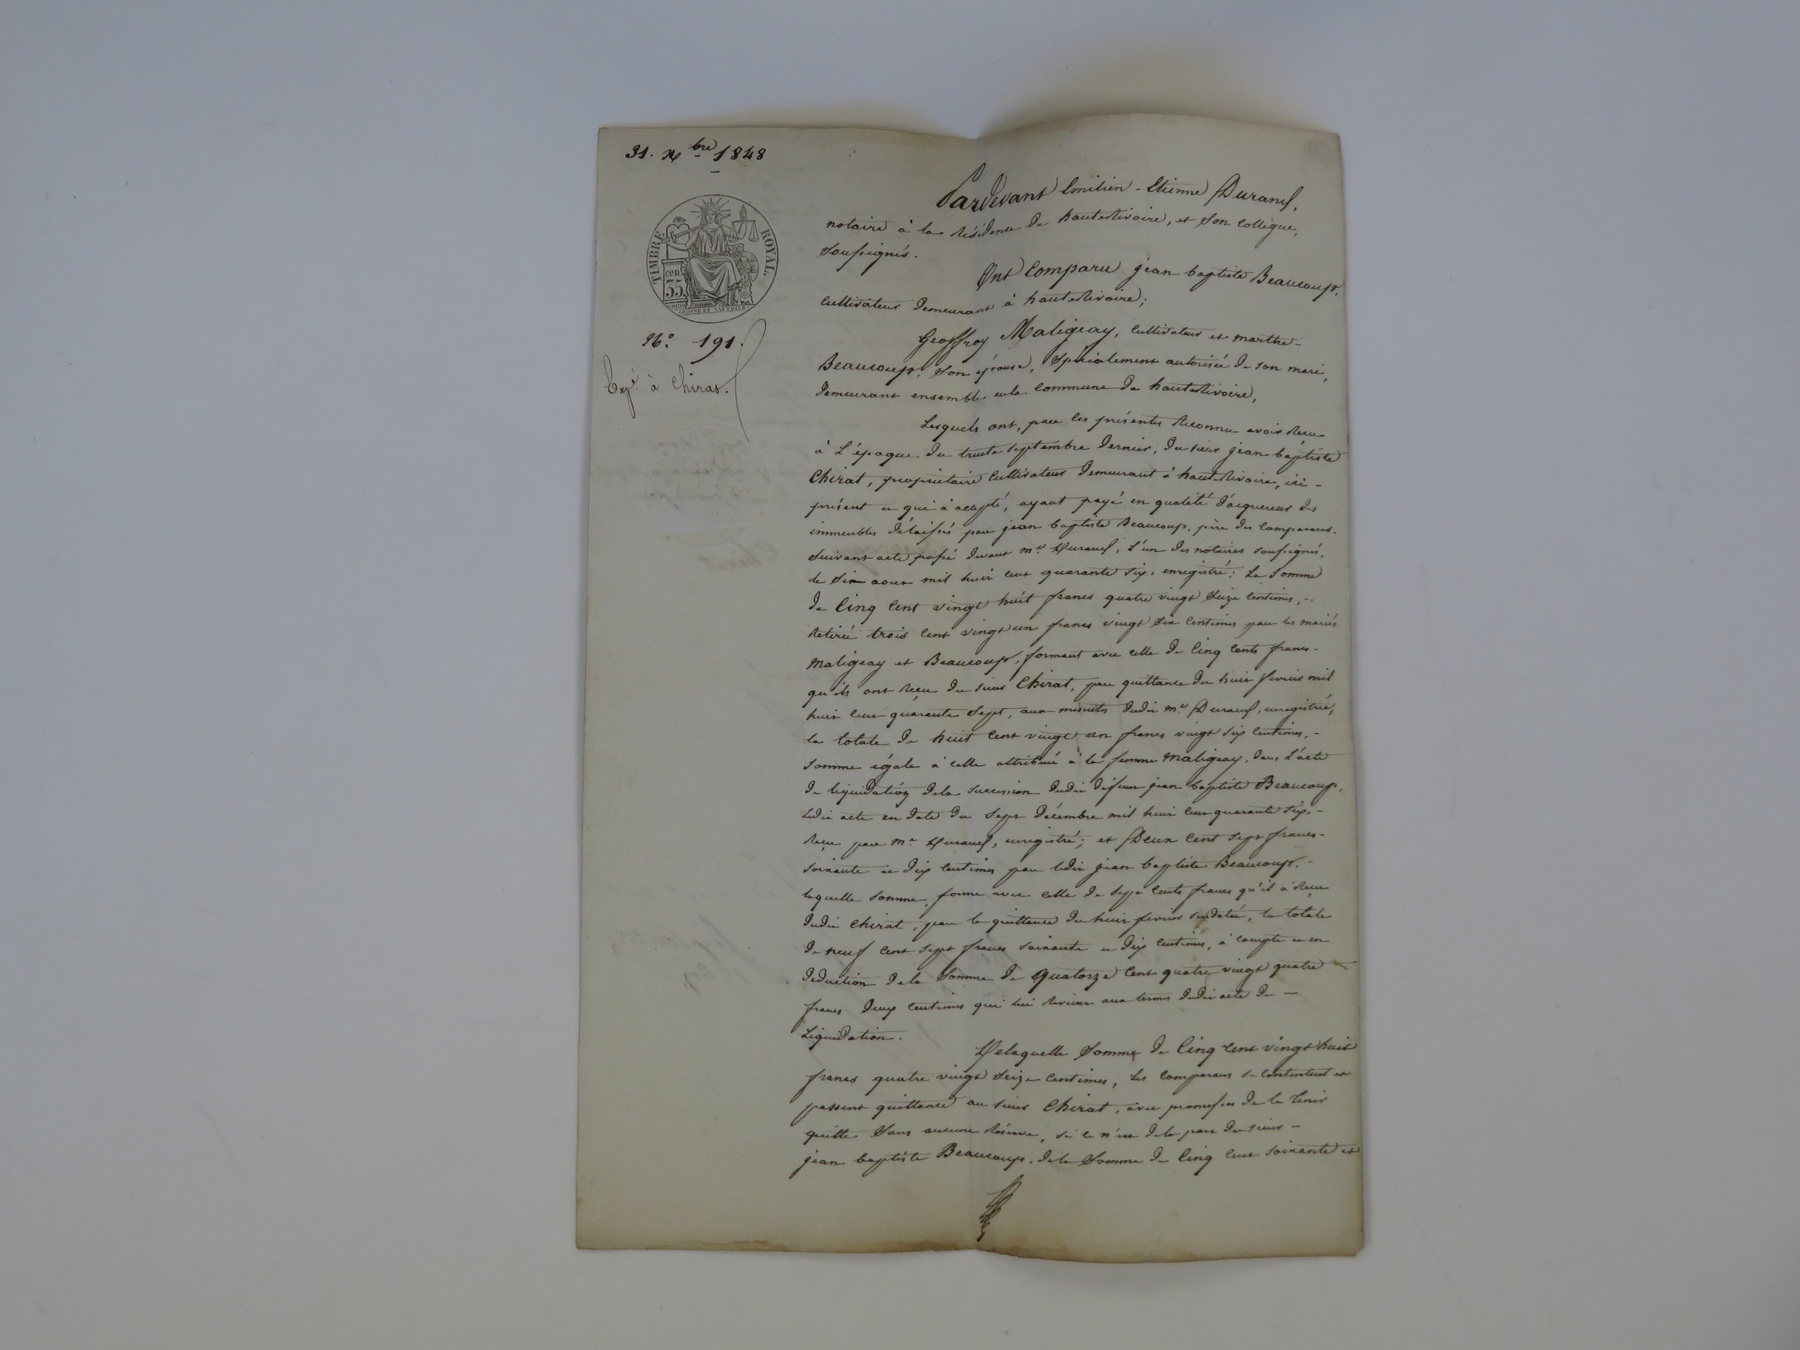 31. Xbre 1848
TIMBRE ROYAL
cen
35
N.° 191.
Exp. à Chirat.
Pardevant Emilien - Etienne Durand,
notaire à la Résidence de hauterivoire, et son collègue,
soussignés.
Ont Comparu jean baptiste Beaucoup,
cultivateur demeurant à hauterivoire;
Geoffroy Maligeay, cultivateur et marthe
Beaucoup, son épouse, spécialement autorisée de son mari,
demeurant ensemble en la commune de hauterivoire,
Lesquels ont, par les présentes Reconnu avoir Reçu
à l'époque du trente septembre dernier, du sieur jean baptiste
Chirat, propriétaire cultivateur demeurant à hauterivoire, ici
présent et qui à accepté, ayant payé en qualité d'acquereur des
immeubles délaissés par jean baptiste Beaucoup, père des comparans,
suivant acte passé devant me. Durand, l'un des notaires soussignés,
le six aout mil huit cent quarante six, enregistré: La somme
de Cinq Cent vingt huit francs quatre vingt Seize centimes,
Retirée trois cent vingt un francs vingt six centimes par les mariés
Maligeay et Beaucoup, formant avec celle de Cinq cents francs
qu'ils ont Reçu du sieur Chirat, par quittance du huit fevrier mil
huit cent quarante sept, aux minutes dudit me. Durand, enregistrée,
la totale de huit cent vingt un francs vingt six centimes,
somme égale à celle attribuée à la femme Maligeay, dans l'acte
de liquidation de la succession dudit défunt jean baptiste Beaucoup,
ledit acte en date du sept décembre mil huit cent quarante six,
Reçu par me. Durand, enregistré; et Deux cent sept francs
soixante et dix centimes par ledit jean baptiste Beaucoup,
laquelle somme, forme avec celle de sept cents francs qu'il à Reçu
dudit Chirat, par la quittance du huit fevrier susdatée, la totale
de neuf cent sept francs soixante et dix centimes, à compte et en
déduction de la somme de Quatorze cent quatre vingt quatre
francs deux centimes qui lui Revient aux termes dudit acte de
Liquidation.
De laquelle somme de Cinq Cent vingt huit
francs quatre vingt seize centimes, les comparans se contentent et
passent quittance au sieur Chirat, avec promesse de le tenir
quitte sans aucune Réserve, si ce n'est de la part du sieur
jean baptiste Beaucoup, de la Somme de Cinq cent soixante et